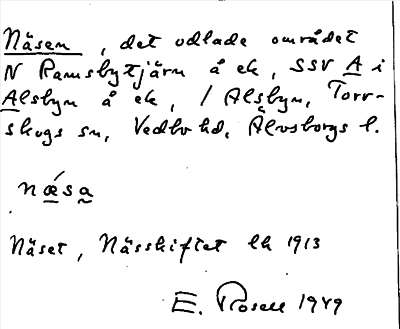 Näsen, det odlade området
N Ramsbytjärn å ek, SSV A i
Alsbyn å ek, / Alsbyn, Torr-
skogs sn, Vedbo hd, Älvsborgs l.
næ´sa
Näset, Nässkiftet lk 1913
E. Rosell 1949